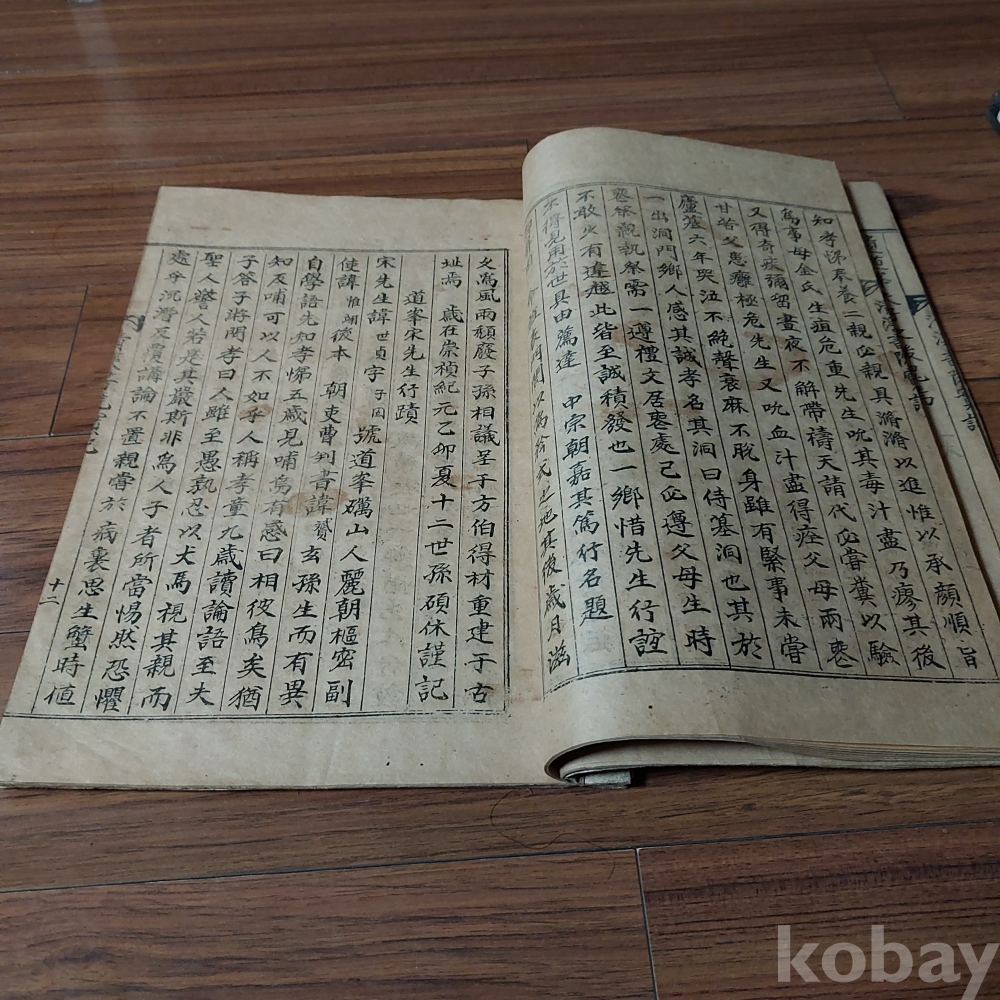 知孝悌奉養二親必親具滫瀡以進惟以承顔順旨
爲事母金氏生疽危重先生吮其毒汁盡乃廖其後
又得奇疾彌留晝夜不解帶禱天請代必嘗糞以驗
甘苦父患癰極危先生又吮血汁盡得痊父母兩喪
廬墓六年哭泣不絶聲衰麻不脫身雖有緊事未嘗
一出洞門鄉人感其誠孝名其洞曰侍墓洞也其於
喪祭親執祭需一遵禮文居喪處己必遵父母生時
不敢少有違越此皆至誠積發也一鄉惜先生行誼
不得見用於世具由薦達 中宗朝嘉其篤行名題
其後歲月滋
久爲風雨頹廢子孫相議呈于方伯得材重建于古
址焉 歲在崇禎紀元乙卯夏十二世孫碩休謹記
道峯宋先生行蹟
宋先生諱世貞字子固 號道峯礪山人麗朝樞密副
使諱惟翊後本 朝吏曹判書諱 玄孫生而有異
自學語先知孝悌五歲見哺烏有感曰相彼烏矣猶
知反哺可以人不如乎人稱孝童九歲讀論語至夫
子答子游問孝曰人雖至愚孰忍以犬馬視其親而
聖人警人若是其嚴斯非爲人子者所當惕然恐懼
處乎沉潛反覆講論不置親嘗於病裏思生蟹時値
十二
kobay